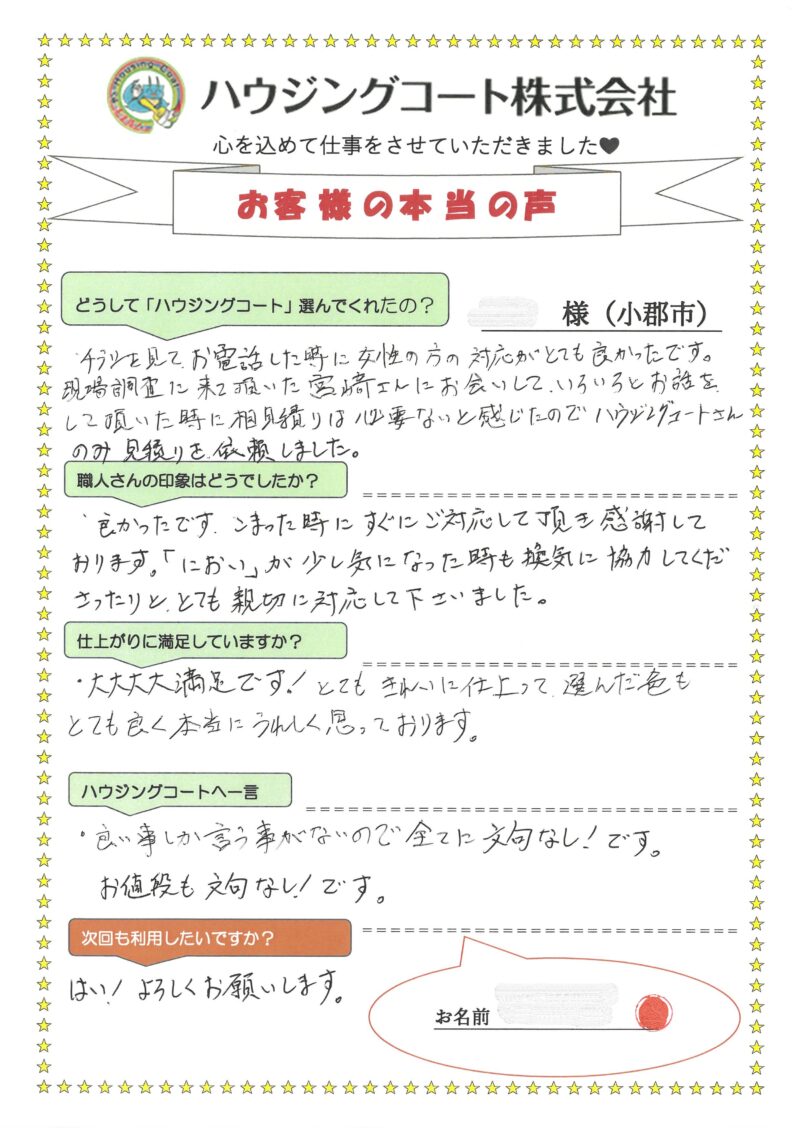 Housing Coat
ハウジングコート株式会社
心を込めて仕事をさせていただきました♥
お客様の本当の声
どうして「ハウジングコート」選んでくれたの？
様（小郡市）
・チラシを見て、お電話した時に女性の方の対応がとても良かったです。
現場調査に来て頂いた宮崎さんにお会いして、いろいろとお話を
して頂いた時に相見積りは必要ないと感じたのでハウジングコートさん
のみ見積りを依頼しました。
職人さんの印象はどうでしたか？
・良かったです、こまった時にすぐにご対応して頂き感謝して
おります。「におい」が少し気になった時も換気に協力してくだ
さったりと、とても親切に対応して下さいました。
仕上がりに満足していますか？
・大大大大満足です！とてもきれいに仕上って、選んだ色も
とても良く本当にうれしく思っております。
ハウジングコートへ一言
・良い事しか言う事がないので全てに文句なし！です。
お値段も文句なし！です。
次回も利用したいですか？
はい！よろしくお願いします。
お名前